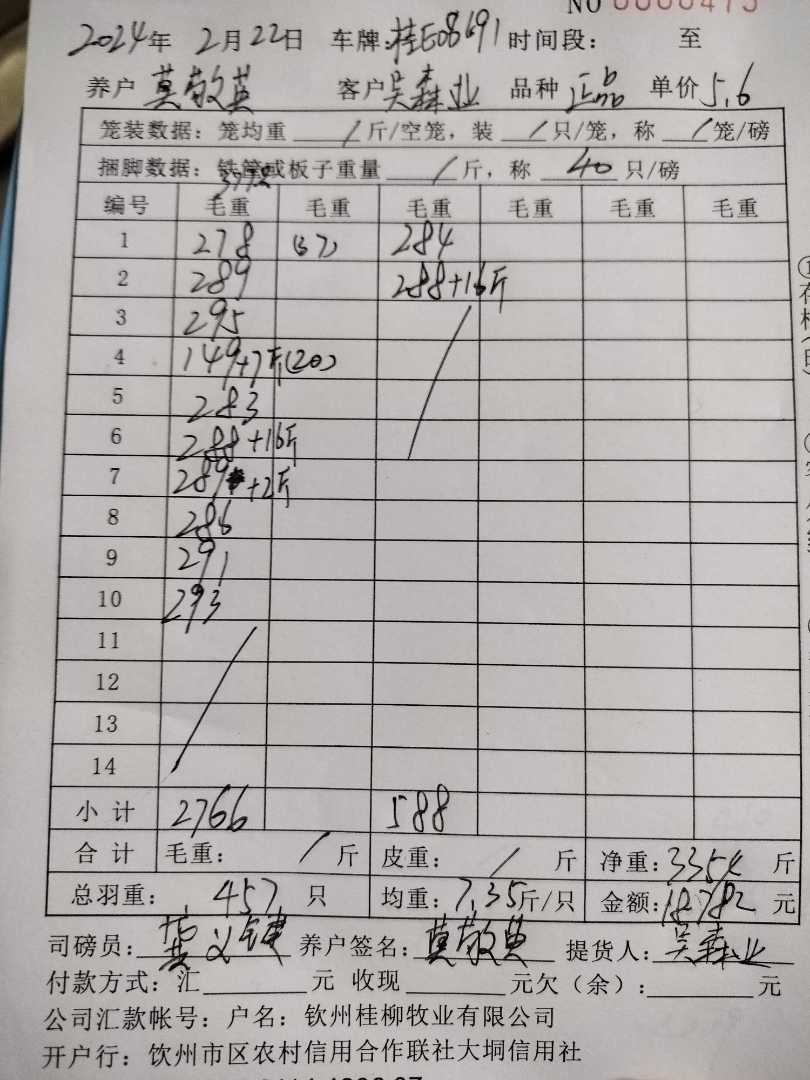 NO 0000475
2024年 2月22日 车牌:桂E08691 时间段: 至
养户 莫敬英 客户 吴森业 品种 正品 单价 5.6
笼装数据: 笼均重 / 斤/空笼, 装 / 只/笼, 称 / 笼/磅
捆脚数据: 铁笼或板子重量 / 斤, 称 40 只/磅
编号 毛重 毛重 毛重 毛重 毛重 毛重
1 278 (37) 284
2 289 288+16斤
3 295
4 149+7斤(20)
5 283
6 288+16斤
7 289+2斤
8 286
9 291
10 293
11
12
13
14
小计 2766 588
合计 毛重: / 斤 皮重: / 斤 净重:3354 斤
总羽重: 457 只 均重:7.35斤/只 金额:18782 元
司磅员: 养户签名:莫敬英 提货人:吴森业
付款方式:汇 元 收现 元欠(余): 元
公司汇款帐号: 户名: 钦州桂柳牧业有限公司
开户行: 钦州市区农村信用合作联社大垌信用社